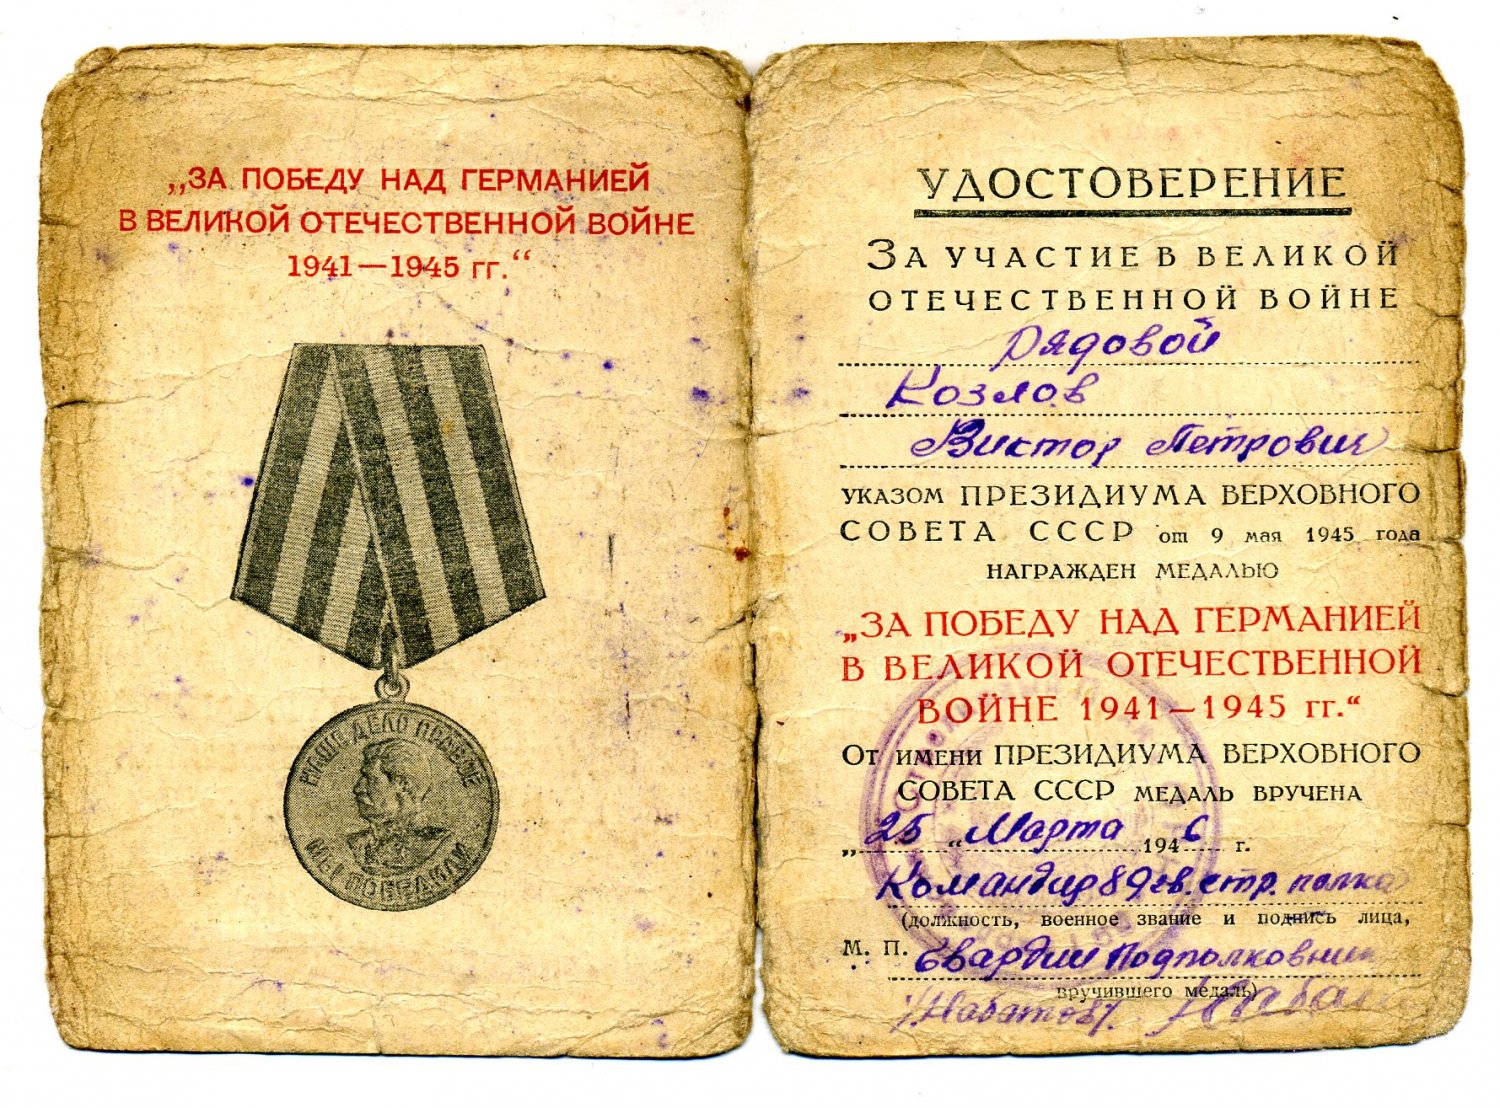 „ЗА ПОБЕДУ НАД ГЕРМАНИЕЙ
В ВЕЛИКОЙ ОТЕЧЕСТВЕННОЙ ВОЙНЕ
1941—1945 гг.“
НАШЕ ДЕЛО ПРАВОЕ
МЫ ПОБЕДИЛИ
УДОСТОВЕРЕНИЕ
ЗА УЧАСТИЕ В ВЕЛИКОЙ
ОТЕЧЕСТВЕННОЙ ВОЙНЕ
Рядовой
Козлов
Виктор Петрович
УКАЗОМ ПРЕЗИДИУМА ВЕРХОВНОГО
СОВЕТА СССР от 9 мая 1945 года
НАГРАЖДЕН МЕДАЛЬЮ
„ЗА ПОБЕДУ НАД ГЕРМАНИЕЙ
В ВЕЛИКОЙ ОТЕЧЕСТВЕННОЙ
ВОЙНЕ 1941—1945 гг.“
ОТ ИМЕНИ ПРЕЗИДИУМА ВЕРХОВНОГО
СОВЕТА СССР МЕДАЛЬ ВРУЧЕНА
„25“ Марта 1946 г.
Командир 89 гв. стр. полка
(должность, военное звание и подпись лица,
М. П. Гвардии Подполковник
вручившего медаль)